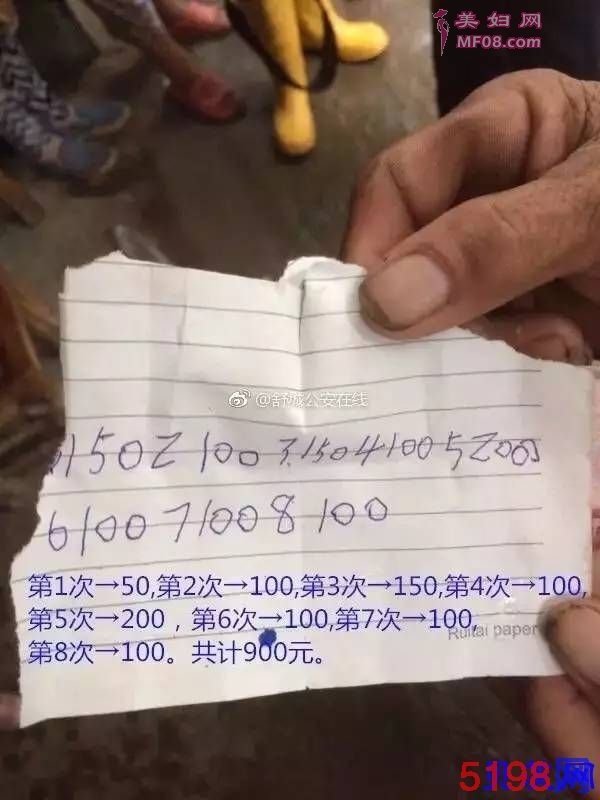 美妇网
MF08.com
@舒城公安在线
1502 100 3.150 4100 5200
6100 7100 8 100
第1次→50,第2次→100,第3次→150,第4次→100,
第5次→200，第6次→100,第7次→100,
第8次→100。共计900元。
Ruitai paper
5198网